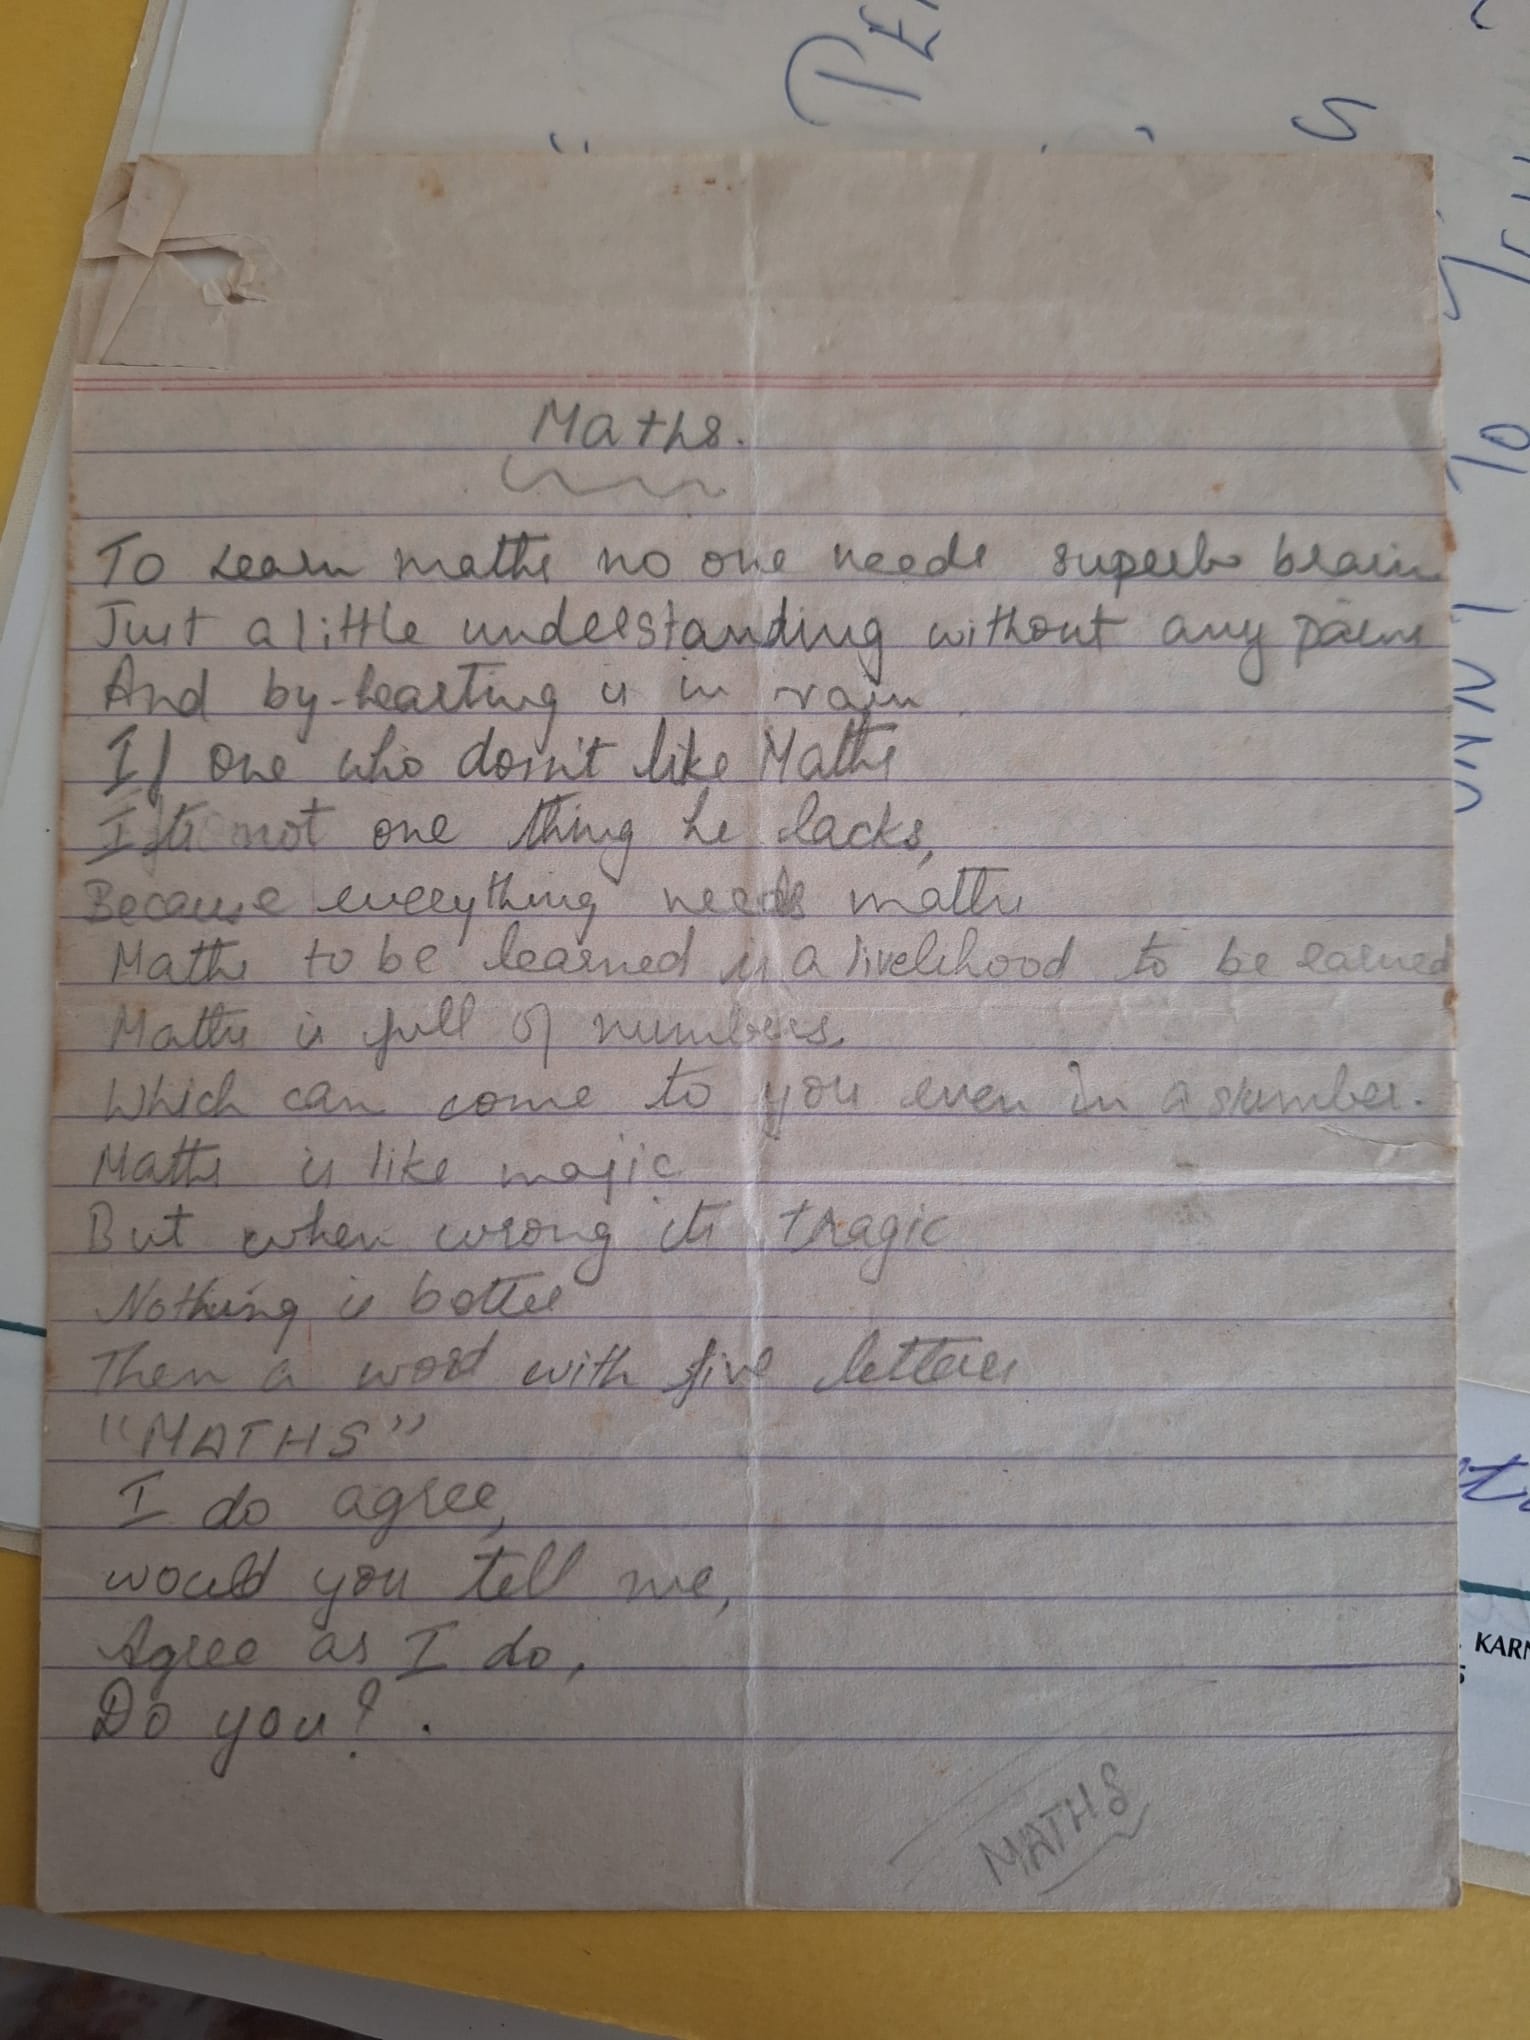 PE
S
TO
Maths.
To learn maths no one needs superb brain
Just a little understanding without any pains
And by-hearting is in vain
If one who doin't like Maths
Its not one thing he lacks,
Because everything needs maths
Maths to be learned is a livelihood to be earned
Maths is full of numbers.
Which can come to you even in a slumber.
Maths is like majic
But when wrong its tragic
Nothing is better
Then a word with five letters
"MATHS"
I do agree,
would you tell me,
Agree as I do,
Do you? .
MATHS
KARN